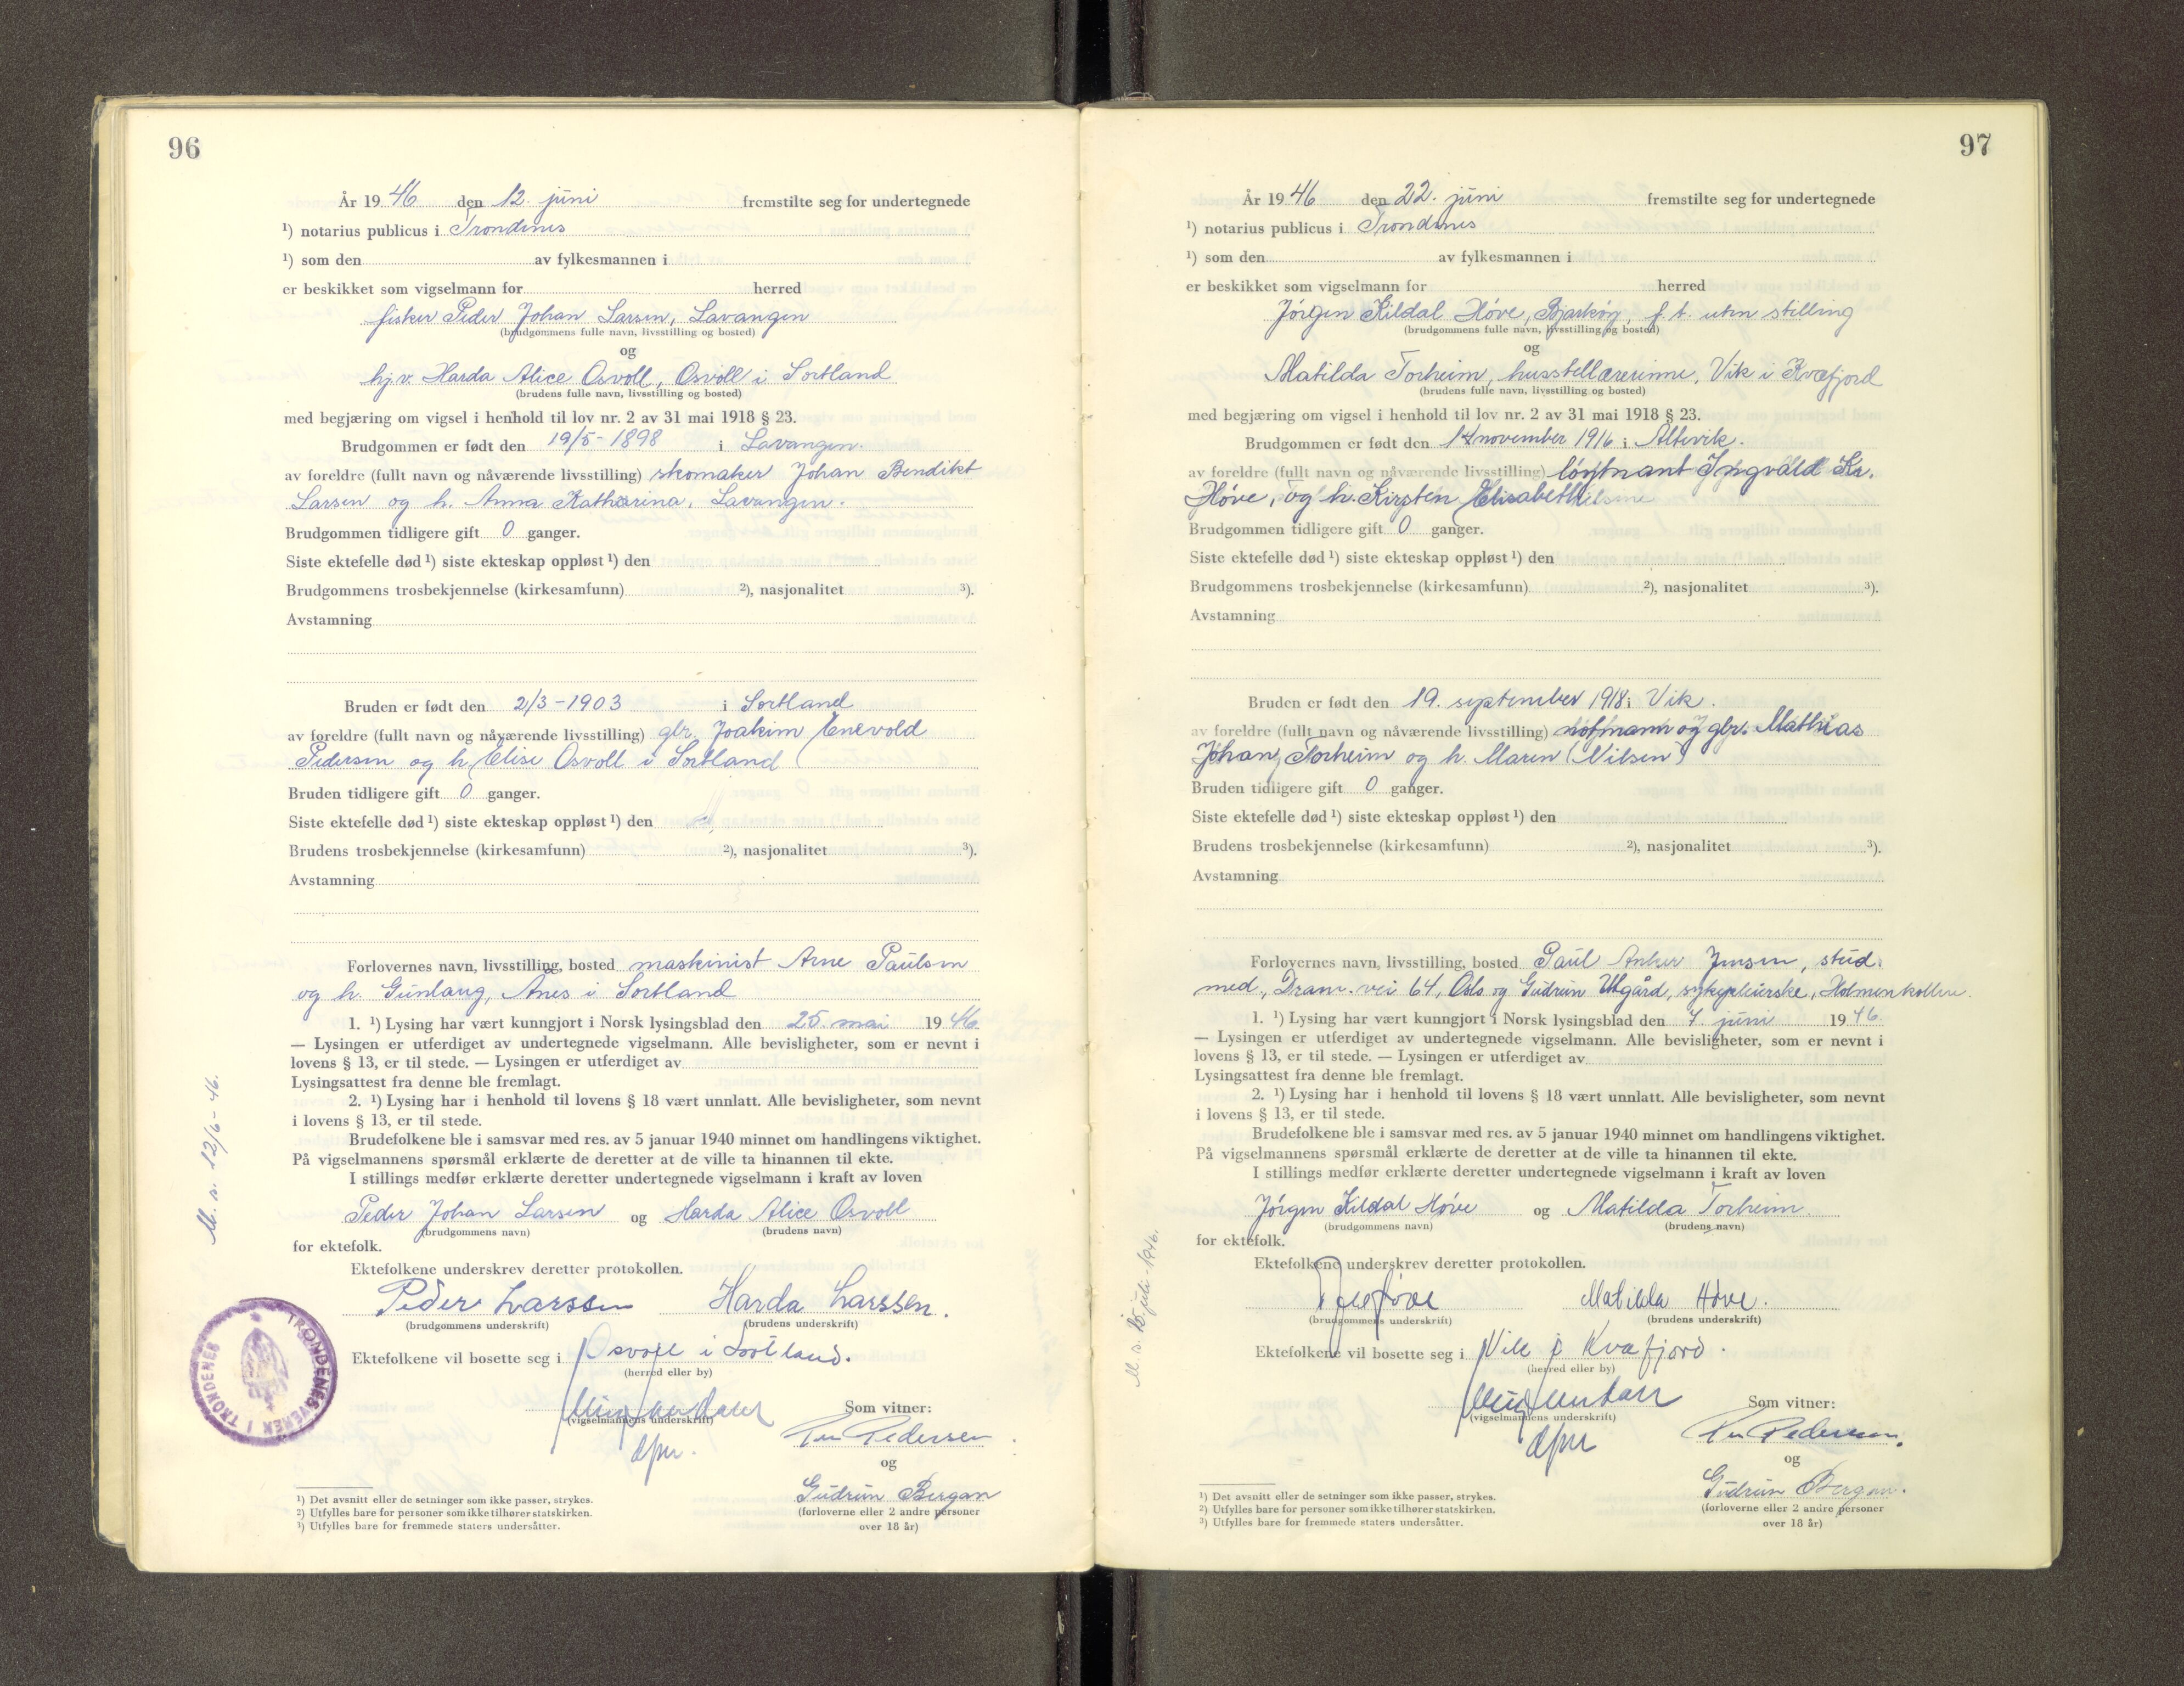 96
År 19 46 den 12. juni fremstilte seg for undertegnede
¹) notarius publicus i Trondenes
¹) som den av fylkesmannen i
er beskikket som vigselmann for herred
fisker Peder Johan Larsen, Lavangen
(brudgommens fulle navn, livsstilling og bosted)
og
hj.v. Harda Alice Osvoll, Osvoll i Sortland
(brudens fulle navn, livsstilling og bosted)
med begjæring om vigsel i henhold til lov nr. 2 av 31 mai 1918 § 23.
Brudgommen er født den 19/5-1898 i Lavangen.
av foreldre (fullt navn og nåværende livsstilling) skomaker Johan Bendikt
Larsen og h. Anna Katharina, Lavangen.
Brudgommen tidligere gift 0 ganger.
Siste ektefelle død ¹) siste ekteskap oppløst ¹) den
Brudgommens trosbekjennelse (kirkesamfunn) ²), nasjonalitet ³).
Avstamning
Bruden er født den 2/3-1903 i Sortland
av foreldre (fullt navn og nåværende livsstilling) gbr. Joakim Enevold
Pedersen og h. Elise Osvoll i Sortland
Bruden tidligere gift 0 ganger.
Siste ektefelle død ¹) siste ekteskap oppløst ¹) den
Brudens trosbekjennelse (kirkesamfunn) ²), nasjonalitet ³).
Avstamning
Forlovernes navn, livsstilling, bosted maskinist Arne Paulsen
og h. Gunlaug, Ånes i Sortland
1. ¹) Lysing har vært kunngjort i Norsk lysingsblad den 25. mai 19 46.
— Lysingen er utferdiget av undertegnede vigselmann. Alle bevisligheter, som er nevnt i
lovens § 13, er til stede. — Lysingen er utferdiget av
Lysingsattest fra denne ble fremlagt.
2. ¹) Lysing har i henhold til lovens § 18 vært unnlatt. Alle bevisligheter, som nevnt
i lovens § 13, er til stede.
Brudefolkene ble i samsvar med res. av 5 januar 1940 minnet om handlingens viktighet.
På vigselmannens spørsmål erklærte de deretter at de ville ta hinannen til ekte.
I stillings medfør erklærte deretter undertegnede vigselmann i kraft av loven
Peder Johan Larsen og Harda Alice Osvoll
(brudgommens navn) (brudens navn)
for ektefolk.
Ektefolkene underskrev deretter protokollen.
Peder Larssen Harda Larssen.
(brudgommens underskrift) (brudens underskrift)
Ektefolkene vil bosette seg i Osvoll i Sortland.
(herred eller by)
Som vitner:
(vigselmannens underskrift)
Pedersen
og
Gudrun Bergan
(forloverne eller 2 andre personer
over 18 år)
¹) Det avsnitt eller de setninger som ikke passer, strykes.
²) Utfylles bare for personer som ikke tilhører statskirken.
³) Utfylles bare for fremmede staters undersåtter.
M. s. 12/6-46.
TRONDENES
SORENSKRIVEREN I TRONDENES
97
År 19 46 den 22. juni fremstilte seg for undertegnede
¹) notarius publicus i Trondenes
¹) som den av fylkesmannen i
er beskikket som vigselmann for herred
Jörgen Kildal Höve, Bjarköy, f.t. uten stilling
(brudgommens fulle navn, livsstilling og bosted)
og
Matilda Torheim, husstellærerinne, Vik i Kvæfjord
(brudens fulle navn, livsstilling og bosted)
med begjæring om vigsel i henhold til lov nr. 2 av 31 mai 1918 § 23.
Brudgommen er født den 14 november 1916 i Altevik.
av foreldre (fullt navn og nåværende livsstilling) löytnant Ingvald Kr.
Höve, og h. Kirsten Elisabeth
Brudgommen tidligere gift 0 ganger.
Siste ektefelle død ¹) siste ekteskap oppløst ¹) den
Brudgommens trosbekjennelse (kirkesamfunn) ²), nasjonalitet ³).
Avstamning
Bruden er født den 19. september 1918 i Vik.
av foreldre (fullt navn og nåværende livsstilling) og gbr. Mathias
Johan Torheim og h. Maren (Nilsen)
Bruden tidligere gift 0 ganger.
Siste ektefelle død ¹) siste ekteskap oppløst ¹) den
Brudens trosbekjennelse (kirkesamfunn) ²), nasjonalitet ³).
Avstamning
Forlovernes navn, livsstilling, bosted Paul Anker Jensen, stud.
med., Dram. vei 64, Oslo og Gudrun Utgård, sykepleierske, Holmenkollen.
1. ¹) Lysing har vært kunngjort i Norsk lysingsblad den 7. juni 19 46.
— Lysingen er utferdiget av undertegnede vigselmann. Alle bevisligheter, som er nevnt i
lovens § 13, er til stede. — Lysingen er utferdiget av
Lysingsattest fra denne ble fremlagt.
2. ¹) Lysing har i henhold til lovens § 18 vært unnlatt. Alle bevisligheter, som nevnt
i lovens § 13, er til stede.
Brudefolkene ble i samsvar med res. av 5 januar 1940 minnet om handlingens viktighet.
På vigselmannens spørsmål erklærte de deretter at de ville ta hinannen til ekte.
I stillings medfør erklærte deretter undertegnede vigselmann i kraft av loven
Jörgen Kildal Höve og Matilda Torheim.
(brudgommens navn) (brudens navn)
for ektefolk.
Ektefolkene underskrev deretter protokollen.
Höve Matilda Höve.
(brudgommens underskrift) (brudens underskrift)
Ektefolkene vil bosette seg i Vik i Kvæfjord.
(herred eller by)
Som vitner:
(vigselmannens underskrift)
Pedersen.
og
Gudrun Bergan.
(forloverne eller 2 andre personer
over 18 år)
¹) Det avsnitt eller de setninger som ikke passer, strykes.
²) Utfylles bare for personer som ikke tilhører statskirken.
³) Utfylles bare for fremmede staters undersåtter.
M. s. juli 1946.